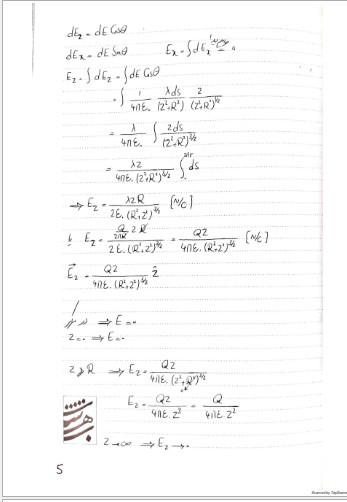 dE_z = dE Cosθ
dE_x = dE Sinθ    E_x = ∫dE_x = 0
E_z = ∫dE_z = ∫dE Cosθ
= ∫ 1/(4πε₀) λds/(z²+R²) z/(z²+R²)^½
= λ/(4πε₀) ∫ zds/(z²+R²)^3/2
= λz/(4πε₀(z²+R²)^3/2) ∫₀^2πr ds
⇒ E_z = λzR/(2ε₀(R²+z²)^3/2) [N/C]
E_z = (Q/2πR) z R/(2ε₀(R²+z²)^3/2) = Qz/(4πε₀(R²+z²)^3/2) [N/C]
E⃗_z = Qz/(4πε₀(R²+z²)^3/2) ẑ
⇒ E = 0
z = 0 ⇒ E = 0
z ≫ R ⇒ E_z = Qz/(4πε₀(z²+R²)^3/2)
E_z = Qz/(4πε₀ z³) = Q/(4πε₀ z²)
z → ∞ ⇒ E_z → 0
5
Scanned by TapScanner